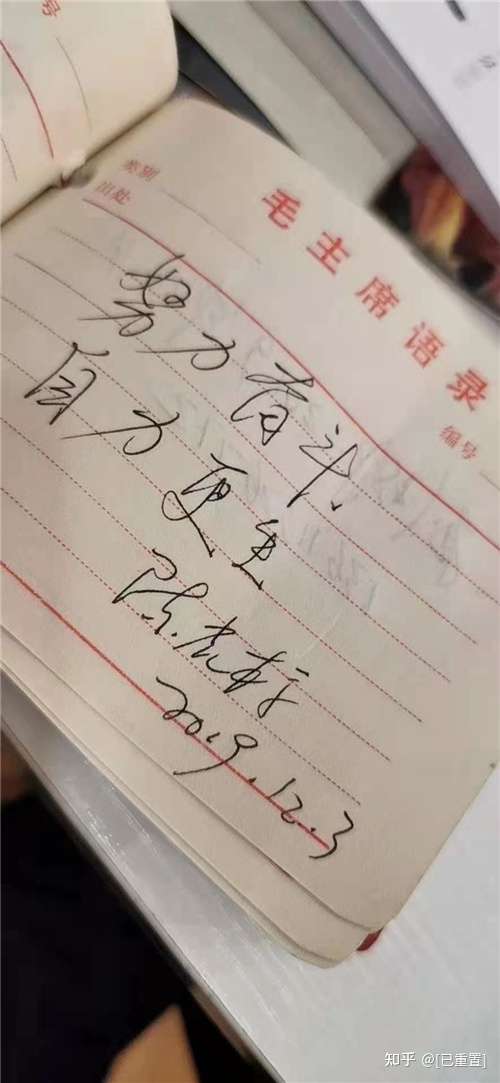 号
毛主席语录
类别
出处
编号
努力奋斗、
自力更生
陈
2019.12.3
知乎 @[已重置]